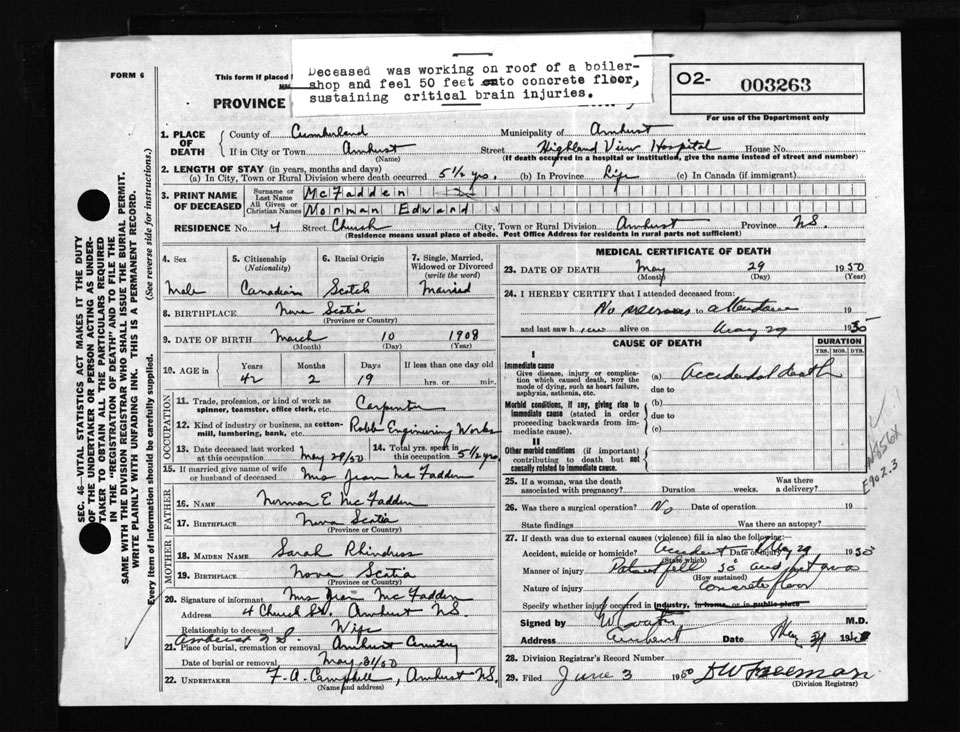 FORM 6
This form if placed
Deceased was working on roof of a boiler-
shop and feel 50 feet onto concrete floor,
sustaining critical brain injuries.
PROVINCE
O2- 003263
For use of the Department only
1. PLACE OF DEATH
County of Cumberland Municipality of Amherst
If in City or Town Amherst Street Highland View Hospital House No.
(Name) (If death occurred in a hospital or institution, give the name instead of street and number)
2. LENGTH OF STAY (in years, months and days)
(a) In City, Town or Rural Division where death occurred 5 1/2 yrs. (b) In Province Life (c) In Canada (if immigrant)
3. PRINT NAME OF DECEASED
Surname or Last Name McFadden
All Given or Christian Names Norman Edward
RESIDENCE No. 4 Street Church City, Town or Rural Division Amherst Province N.S.
(Residence means usual place of abode. Post Office Address for residents in rural parts not sufficient)
4. Sex Male
5. Citizenship (Nationality) Canadian
6. Racial Origin Scotch
7. Single, Married, Widowed or Divorced (write the word) Married
8. BIRTHPLACE Nova Scotia
(Province or Country)
9. DATE OF BIRTH March 10 1908
(Month) (Day) (Year)
10. AGE in Years 42 Months 2 Days 19 If less than one day old hrs. or min.
OCCUPATION
11. Trade, profession, or kind of work as spinner, teamster, office clerk, etc. Carpenter
12. Kind of industry or business, as cotton-mill, lumbering, bank, etc. Robb Engineering Works
13. Date deceased last worked at this occupation May 29/50
14. Total yrs. spent in this occupation 5 1/2 yrs.
15. If married give name of wife or husband of deceased Mrs Jean McFadden
FATHER
16. NAME Norman E McFadden
17. BIRTHPLACE Nova Scotia
(Province or Country)
MOTHER
18. MAIDEN NAME Sarah Rhindress
19. BIRTHPLACE Nova Scotia
(Province or Country)
20. Signature of informant Mrs Jean McFadden
Address 4 Church St., Amherst N.S.
Relationship to deceased Wife
Amherst N.S.
21. Place of burial, cremation or removal Amherst Cemetery
Date of burial or removal May 31/50
22. UNDERTAKER F. A. Campbell, Amherst N.S.
(Name and address)
MEDICAL CERTIFICATE OF DEATH
23. DATE OF DEATH May 29 1950
(Month) (Day) (Year)
24. I HEREBY CERTIFY that I attended deceased from:
No previous attendance 19
and last saw him alive on May 29 1950
CAUSE OF DEATH
DURATION
YRS. MOS. DYS.
I
Immediate cause
Give disease, injury or complication which caused death, NOT the mode of dying, such as heart failure, asphyxia, asthenia, etc.
(a) Accidental death
due to
Morbid conditions, if any, giving rise to immediate cause (stated in order proceeding backwards from immediate cause).
(b)
due to
(c)
II
Other morbid conditions (if important) contributing to death but not causally related to immediate cause.
E902.3
25. If a woman, was the death associated with pregnancy? Duration weeks. Was there a delivery?
26. Was there a surgical operation? No Date of operation 19
State findings Was there an autopsy?
27. If death was due to external causes (violence) fill in also the following:
Accident, suicide or homicide? Accident Date of injury May 29 1950
(State which)
Manner of injury fell 50'
(How sustained)
Nature of injury Concrete floor
Specify whether injury occurred in industry, in home, or in public place
Signed by M.D.
Address Amherst Date May 1950
28. Division Registrar's Record Number
29. Filed June 3 1950 DW Freeman
(Division Registrar)
SEC. 46—VITAL STATISTICS ACT MAKES IT THE DUTY
OF THE UNDERTAKER OR PERSON ACTING AS UNDER-
TAKER TO OBTAIN ALL THE PARTICULARS REQUIRED
IN THE "REGISTRATION OF DEATH" AND TO FILE THE
SAME WITH THE DIVISION REGISTRAR WHO SHALL ISSUE THE BURIAL PERMIT.
WRITE PLAINLY WITH UNFADING INK. THIS IS A PERMANENT RECORD.
Every item of information should be carefully supplied. (See reverse side for instructions.)